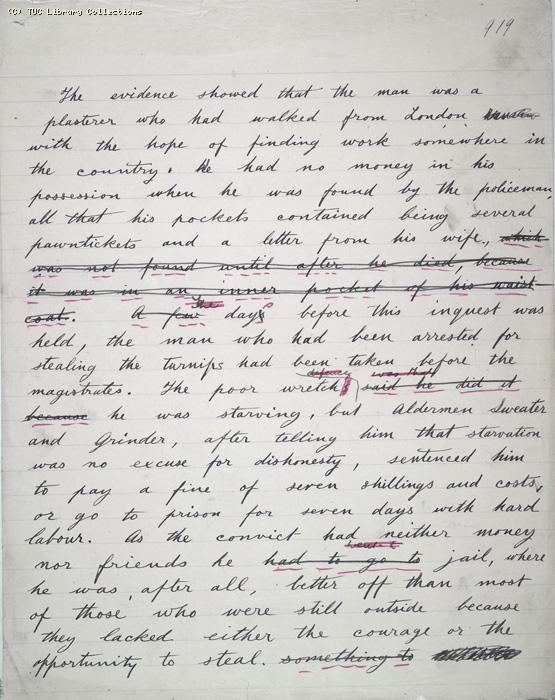 (C) TUC Library Collections
919
The evidence showed that the man was a
plasterer who had walked from London
with the hope of finding work somewhere in
the country. He had no money in his
possession when he was found by the policeman,
all that his pockets contained being several
pawntickets and a letter from his wife, which
was not found until after he died, because
it was in an inner pocket of his waist
coat. A few The days before this inquest was
held, the man who had been arrested for
stealing the turnips had been taken before the
magistrates. The poor wretch said he did it
because he was starving, but Aldermen Sweater
and Grinder, after telling him that starvation
was no excuse for dishonesty, sentenced him
to pay a fine of seven shillings and costs,
or go to prison for seven days with hard
labour. As the convict had neither money
nor friends he had to go to jail, where
he was, after all, better off than most
of those who were still outside because
they lacked either the courage or the
opportunity to steal. something to